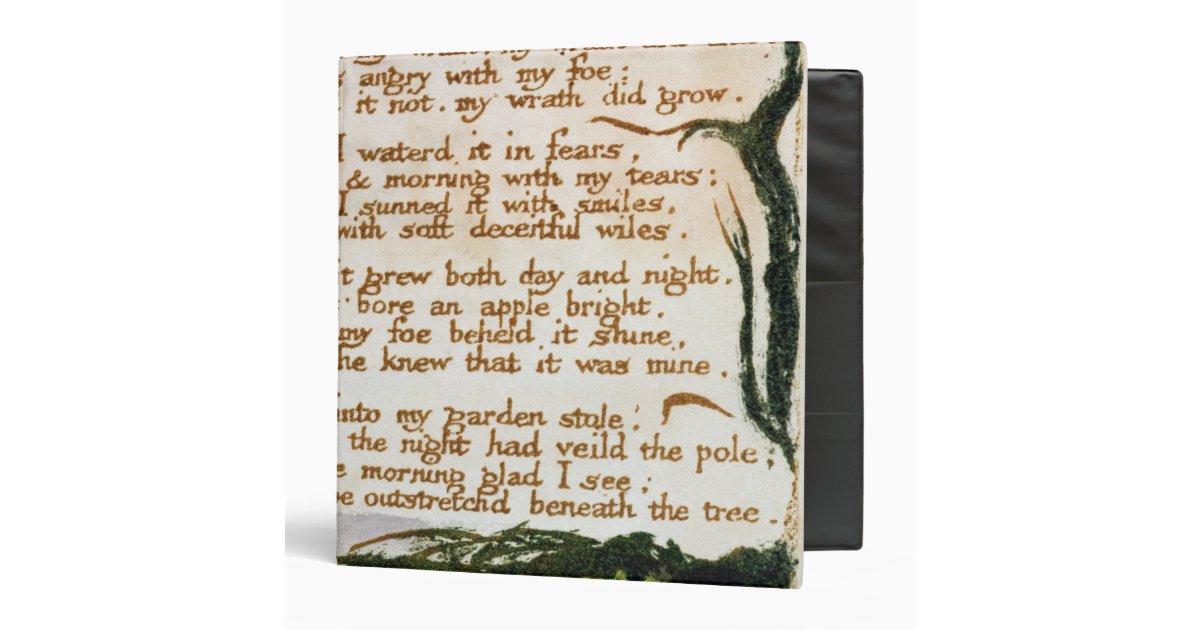 angry with my foe:
it not. my wrath did grow.
I waterd it in fears,
& morning with my tears:
I sunned it with smiles,
with soft deceitful wiles.
grew both day and night.
bore an apple bright.
my foe beheld it shine,
he knew that it was mine.
into my garden stole:
the night had veild the pole;
morning glad I see;
outstretchd beneath the tree.